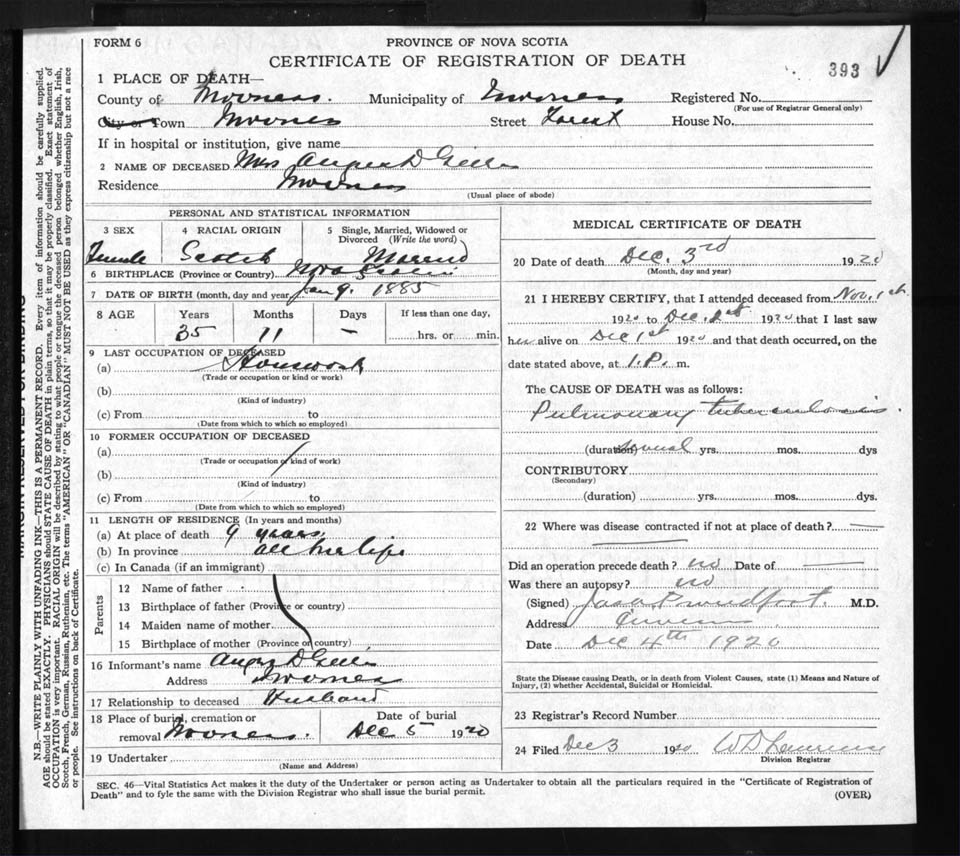 FORM 6
PROVINCE OF NOVA SCOTIA
CERTIFICATE OF REGISTRATION OF DEATH
393
1 PLACE OF DEATH—
County of Inverness. Municipality of Inverness Registered No.
(For use of Registrar General only)
City or Town Inverness Street Forest House No.
If in hospital or institution, give name
2 NAME OF DECEASED Mrs Angus D Gillis
Residence Inverness
(Usual place of abode)
PERSONAL AND STATISTICAL INFORMATION
3 SEX
Female
4 RACIAL ORIGIN
Scotch
5 Single, Married, Widowed or
Divorced (Write the word)
Married
6 BIRTHPLACE (Province or Country) Nova Scotia
7 DATE OF BIRTH (month, day and year) Jan 9. 1885
8 AGE Years Months Days If less than one day,
35 11 – hrs. or min.
9 LAST OCCUPATION OF DECEASED
(a) Housework
(Trade or occupation or kind or work)
(b)
(Kind of industry)
(c) From to
(Date from which to which so employed)
10 FORMER OCCUPATION OF DECEASED
(a)
(Trade or occupation or kind of work)
(b)
(Kind of industry)
(c) From to
(Date from which to which so employed)
11 LENGTH OF RESIDENCE (In years and months)
(a) At place of death 9 years
(b) In province all her life
(c) In Canada (if an immigrant)
Parents
12 Name of father
13 Birthplace of father (Province or country)
14 Maiden name of mother
15 Birthplace of mother (Province or country)
16 Informant's name Angus D Gillis
Address Inverness
17 Relationship to deceased Husband
18 Place of burial, cremation or
removal Inverness.
Date of burial
Dec 5 1920
19 Undertaker
(Name and Address)
MEDICAL CERTIFICATE OF DEATH
20 Date of death Dec. 3rd 1920
(Month, day and year)
21 I HEREBY CERTIFY, that I attended deceased from Nov. 1st
1920 to Dec. 1st 1920 that I last saw
her alive on Dec 1st 1920 and that death occurred, on the
date stated above, at 1.P. m.
The CAUSE OF DEATH was as follows:
Pulmonary tuberculosis.
(duration) several yrs. mos. dys
CONTRIBUTORY
(Secondary)
(duration) yrs. mos. dys.
22 Where was disease contracted if not at place of death?
Did an operation precede death? no Date of
Was there an autopsy? no
(Signed) Proudfoot. M.D.
Address Inverness
Date Dec 4th 1920
State the Disease causing Death, or in death from Violent Causes, state (1) Means and Nature of
Injury, (2) whether Accidental, Suicidal or Homicidal.
23 Registrar's Record Number
24 Filed Dec 3 1920 W D Lawrence
Division Registrar
SEC. 46—Vital Statistics Act makes it the duty of the Undertaker or person acting as Undertaker to obtain all the particulars required in the "Certificate of Registration of
Death" and to fyle the same with the Division Registrar who shall issue the burial permit.
(OVER)
MARGIN RESERVED FOR BINDING
N.B.—WRITE PLAINLY WITH UNFADING INK—THIS IS A PERMANENT RECORD. Every item of information should be carefully supplied.
AGE should be stated EXACTLY. PHYSICIANS should STATE CAUSE OF DEATH in plain terms, so that it may be properly classified. Exact statement of
OCCUPATION is very important. RACIAL ORIGIN will be described by stating to what people or tongue the deceased person belonged whether English, Irish,
Scotch, French, German, Russian, Ruthenian, etc. The terms "AMERICAN" OR "CANADIAN" MUST NOT BE USED as they express citizenship but not a race
or people. See instructions on back of Certificate.